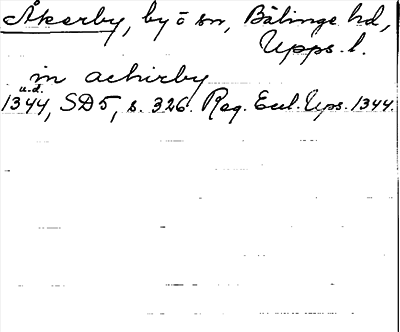 Åkerby, by ō sn, Bälinge hd,
Upps. l.
in achirby
u.d.
1344, SD5, s. 326. Reg. Eccl. Ups. 1344.